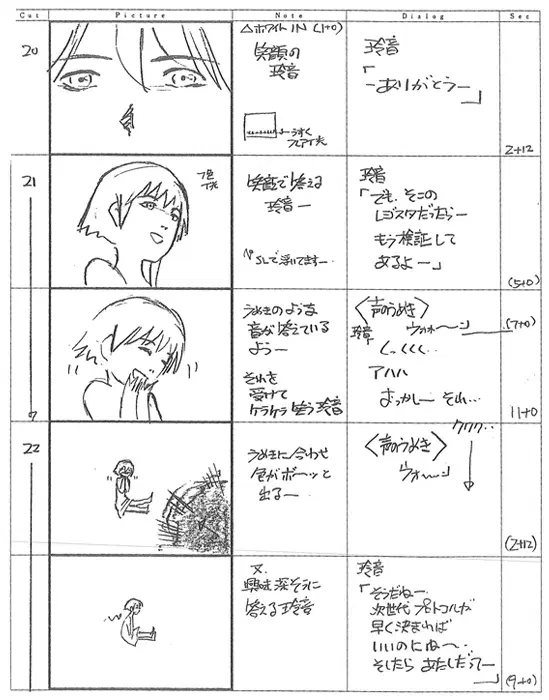 Cut Picture Note Dialog Sec
20
△ホワイトIN (1+0)
笑顔の
玲音
うすく
玲音
「
ーありがとうー
」
2+12
21
笑顔で答える
玲音ー
SLで浮いてますー
玲音
「でも、そこの
レジスタだったらー
もう検証して
あるよー」
(5+0)
うめきのような
音が答えている
ようー
それを
受けて
ケラケラ笑う玲音
〈声のうめき〉
ウォォ〜ン
(7+0)
玲音
くっくくく…
アハハ
おっかしー それ…
11+0
22
うめきに合わせ
色がボーッと
出るー
〈声のうめき〉
ウォ〜ン
クククク‥
(2+12)
又、
興味深そうに
答える玲音
玲音
「そうだねー
次世代プロトコルが
早く決まれば
いいのにねー、
そしたら あたしだってー
」
(9+0)